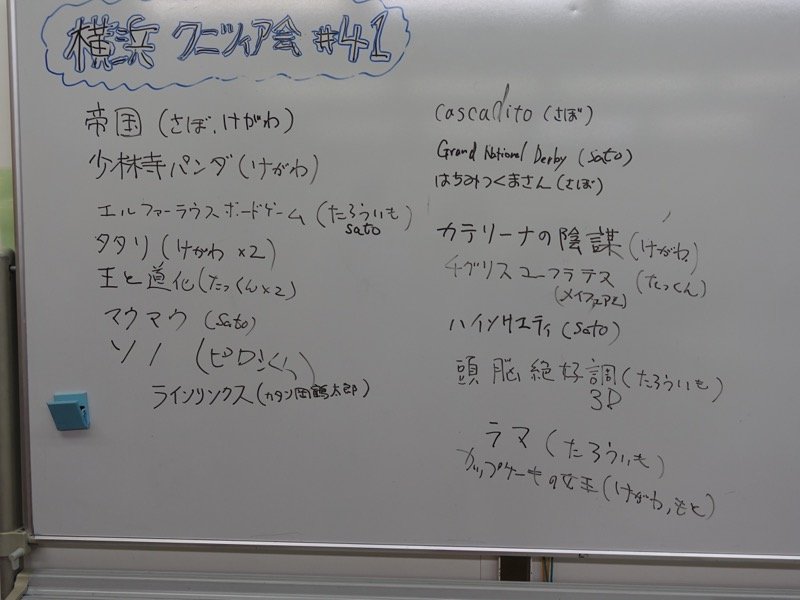 横浜 クニツィア会 #41
帝国 (さぼ, けがわ)
少林寺パンダ (けがわ)
エルファーラウスボードゲーム (たろういも)
sato
タタリ (けがわ×2)
王と道化 (たっくん×2)
マウマウ (sato)
ソノ (ピロシくん)
ラインリンクス (カタン岡鶴太郎)
cascadito (さぼ)
Grand National Derby (sato)
はちみつくまさん (さぼ)
カテリーナの陰謀 (けがわ)
チグリスユーフラテス (たっくん)
(メイフェアと)
ハイソサエティ (sato)
頭脳絶好調 (たろういも)
3D
ラマ (たろういも)
カップケーキの女王 (けがわ, もと)